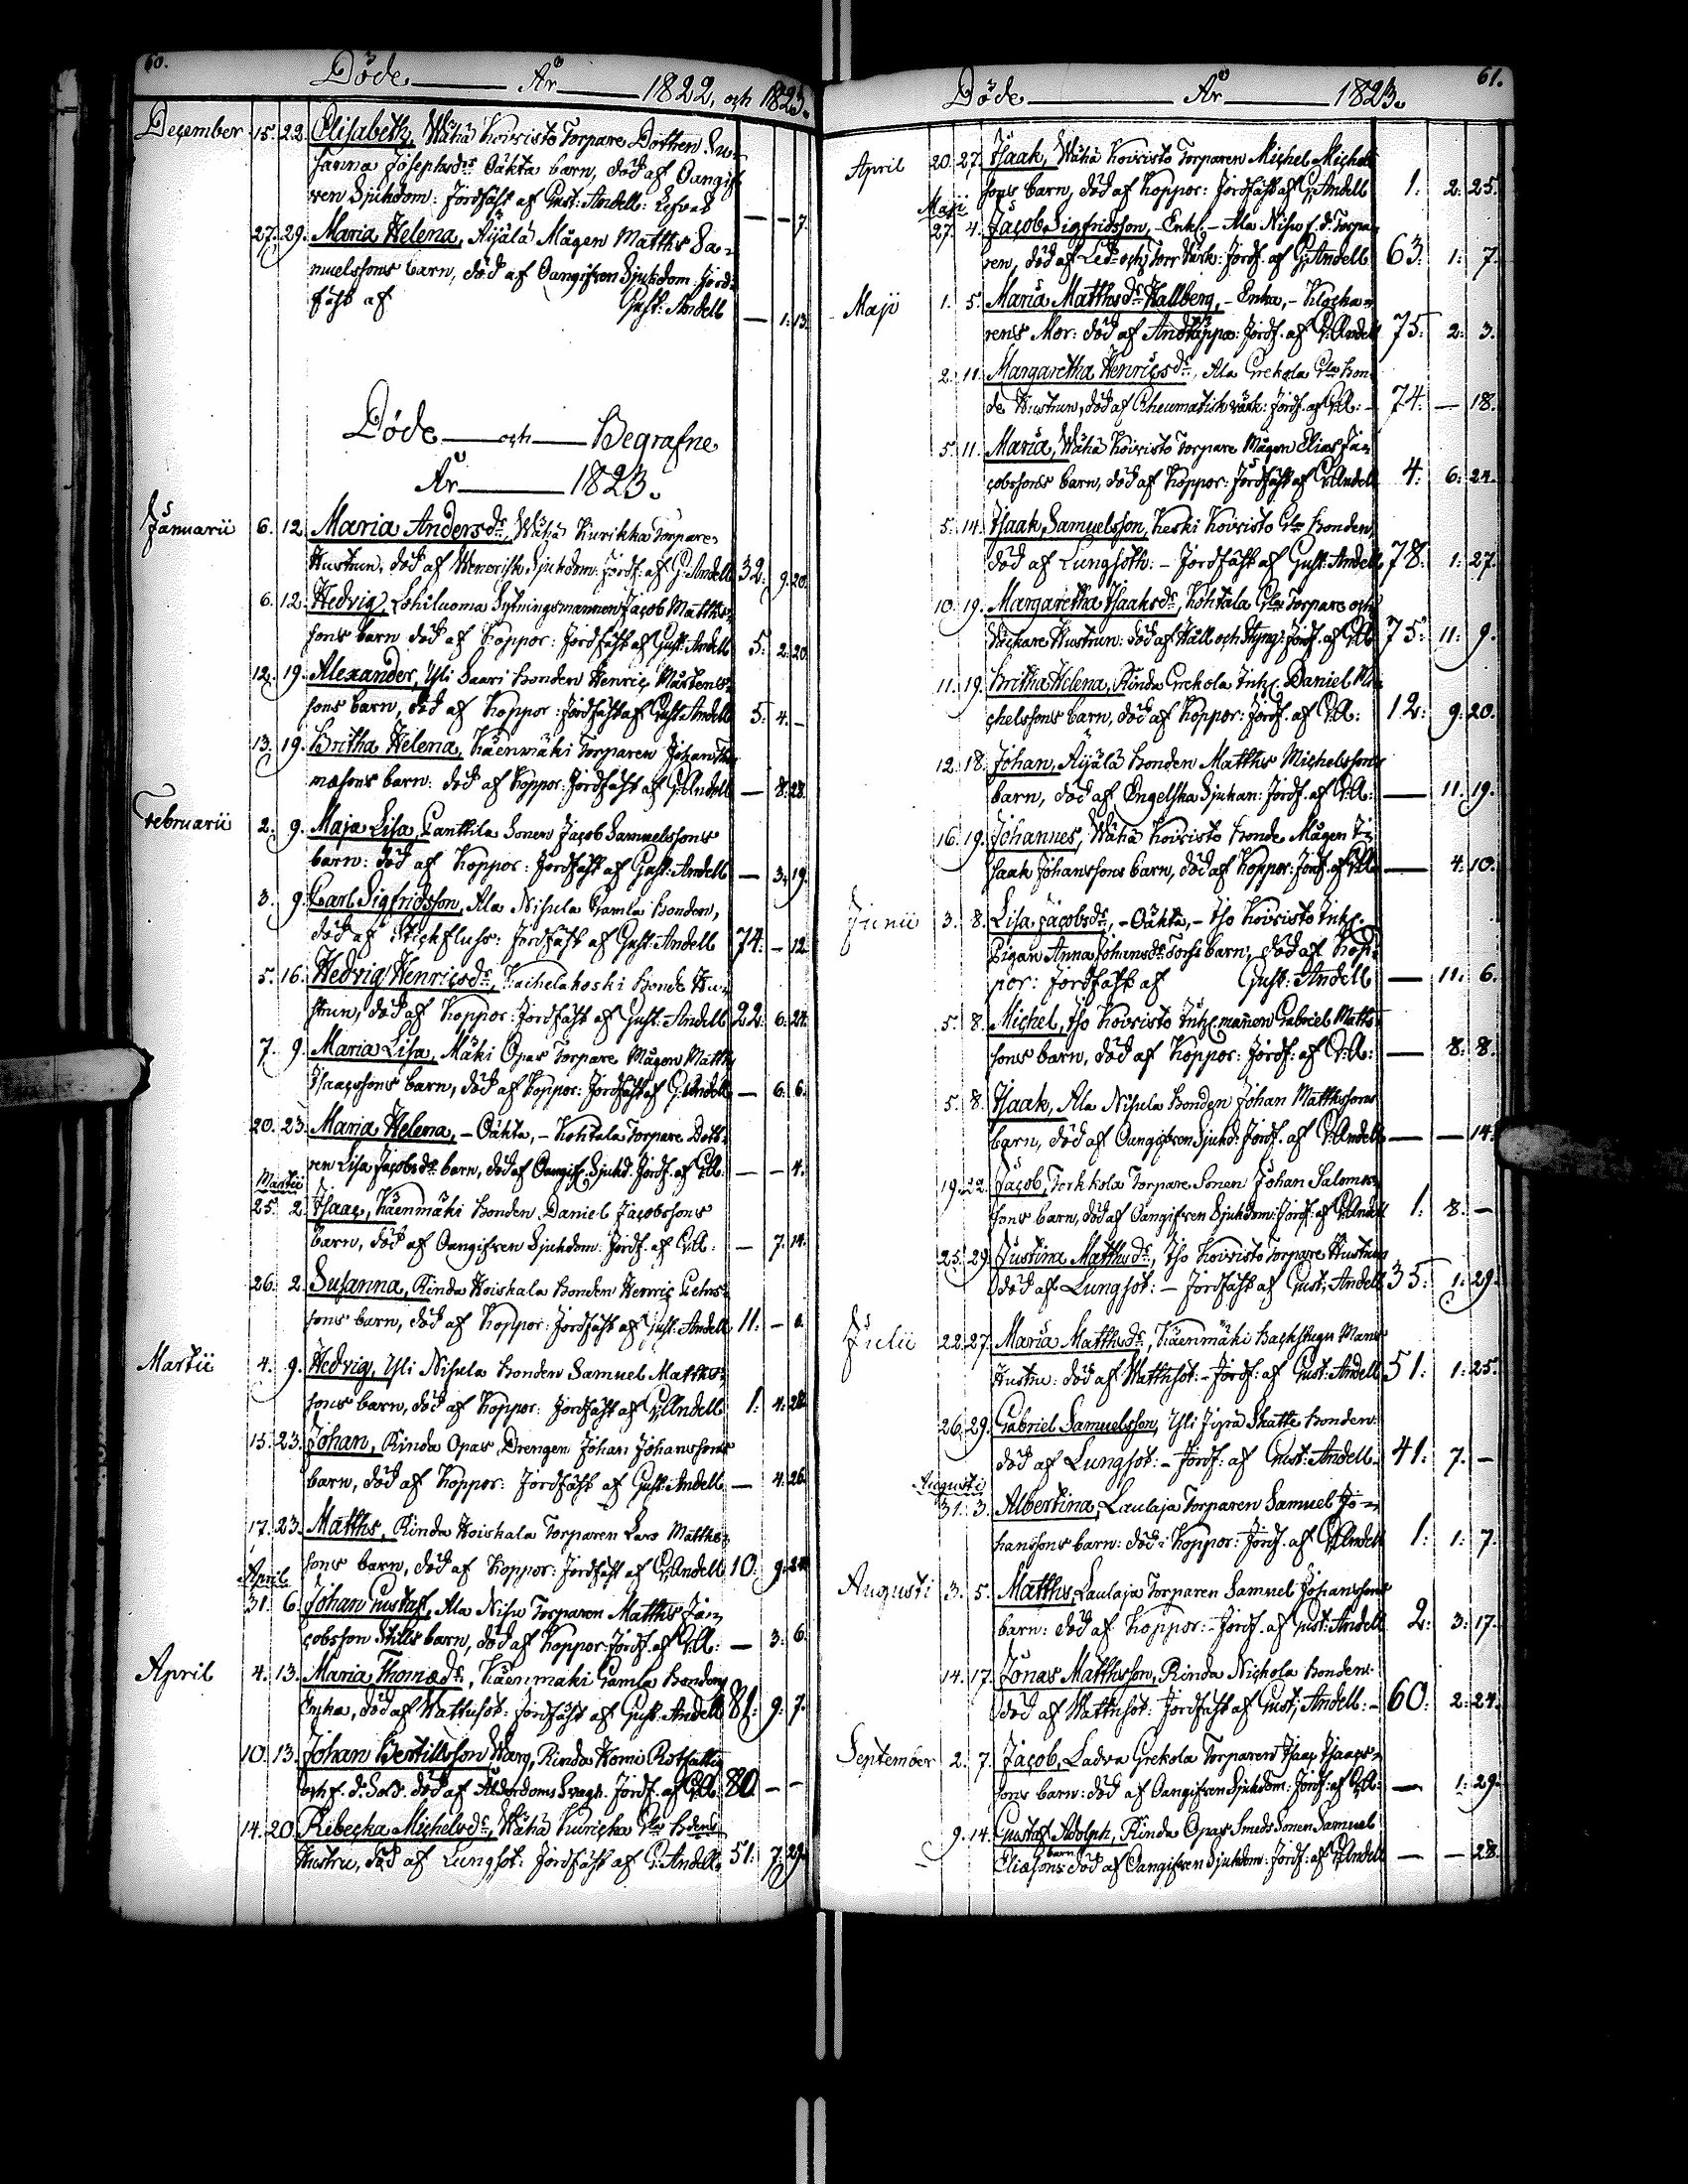 60.
Döde År 1822, och 1823.
December 15. 22. Elisabeth, Wähä Koivisto Torpare Dottren Su-
sanna Josephsdr Oäkta barn, död af Oangif-
ven Sjukdom: Jordfäst af Gust: Andell: Lefvat — — 7.
27. 29. Maria Helena, Äijälä Mågen Matths Sa-
muelssons barn, död af Oangifven Sjukdom: Jord-
fäst af Gust: Andell — 1: 13.
Döde och Begrafne
År 1823.
Januarii 6. 12. Maria Andersdr, Wähä Kurikka Torpare
Hustrun, död af Venerisk Sjukdom: Jordf: af G: Andell 32: 9: 20.
6. 12. Hedvig, Lohiluoma Sytningsmannen Jacob Matths-
sons barn död af Koppor: Jordfäst af Gust: Andell 5: 2: 20.
12. 19. Alexander, Yli Saari Bonden Henric Mårtens-
sons barn, död af Koppor: Jordfäst af Gust: Andell 5: 4: –
13. 19. Britha Helena, Käenmäki Torparen Johan Tho-
mæsons barn: död af Koppor: Jordfäst af G: Andell — 8: 28.
Februarii 2. 9. Maja Lisa, Panttila Sonen Jacob Samuelssons
barn: död af Koppor: Jordfäst af Gust: Andell — 3: 19.
3. 9. Carl Sigfridsson, Ala Nisula Gamla Bonden,
död af Stickfluss: Jordfäst af Gust: Andell 74: – 12.
5. 16. Hedvig Henricsdr, Kaihelakoski Bonde Hu-
strun, död af Koppor: Jordfäst af Gust: Andell 22: 6: 24.
7. 9. Maria Lisa, Mäki Opas Torpare Mågen Matths
Isaacssons barn, död af Koppor: Jordfäst af G: Andell — 6: 6.
20. 23. Maria Helena, – Oäkta, – Kohtala Torpare Dott-
ren Lisa Jacobsdr barn, död af Oangif: Sjukd: Jordf. af G: A: — – 4.
Martii
25. 2. Isaac, Käenmäki Bonden Daniel Jacobssons
barn, död af Oangifven Sjukdom: Jordf. af G: A: — 7: 14.
26. 2. Susanna, Rinda Hoiskala Bonden Henric Pehrs-
sons barn, död af Koppor: Jordfäst af Gust: Andell 11: – 6.
Martii 4. 9. Hedvig, Yli Nisula Bonden Samuel Matths-
sons barn, död af Koppor: Jordfäst af G: Andell 1: 4: 28.
15. 23. Johan, Rinda Opas Drengen Johan Johanssons
barn, död af Koppor: Jordfäst af Gust: Andell — 4: 26.
17. 23. Matths, Rinda Hoiskala Torparen Lars Matths-
sons barn, död af Koppor: Jordfäst af G: Andell 10: 9: 24.
April
31. 6. Johan Gustaf, Ala Nisu Torparen Matths Ja-
cobsson Stills barn, död af Koppor: Jordf. af G: A: — 3: 6.
April 4. 13. Maria Thomædr, Käenmäki Gamla Bonden
Enka, död af Wattusot: Jordfäst af Gust: Andell 81: 9: 7.
10. 13. Johan Bertillsson Warg, Rinda Homi Rotfattig
och f. d. Sold. död af Ålderdoms Svagh. Jordf. af G: A: 80. – –
14. 20. Rebecka Michelsdr, Wähä Kuricka Gla Bdens
Hustru, död af Lungsot: Jordfäst af G: Andell 51: 7: 29.
61.
Döde År 1823.
April 20. 27. Isaak, Wähä Koivisto Torparen Michel Michels-
sons barn, död af Koppor: Jordfäst af G: Andell 1: 2: 25.
Maji
27. 4. Jacob Sigfridsson, – Enkl. – Ala Nisu f. d. Torpa-
ren, död af Led- och Torr Värk: Jordf. af G: Andell 63: 1: 7.
Maji 1. 5. Maria Matthsdr Hallberg, – Enka, – Klocka-
rens Mor: död af Andtäppa: Jordf. af G: Andell 75: 2: 3.
2. 11. Margaretha Henricsdr, Ala Grekola Gla Bon-
de Hustrun, död af Rheumatisk värk: Jordf. af G: A: 74: — 18.
5. 11. Maria, Wähä Koivisto Torpare Mågen Elias Ja-
cobssons barn, död af Koppor: Jordfäst af G: Andell 4: 6: 24.
5. 14. Isaak Samuelsson, Keski Koivisto Gla Bonden
död af Lungsoth: – Jordfäst af Gust: Andell 78: 1: 27.
10. 19. Margaretha Isaaksdr, Kohtala Gla Torpare och
Häckare Hustrun: död af Håll och Styng: Jordf. af G: A: 75: 11: 9.
11. 19. Britha Helena, Rinda Grekola Inh. Daniel Mi-
chelssons barn, död af Koppor: Jordf. af G: A: 12: 9: 20.
12. 18. Johan, Äijälä Bonden Matths Michelssons
barn, död af Engelska Sjukan: Jordf. af G: A: — 11: 19.
16. 19. Johannes, Wähä Koivisto Bonde Mågen I-
saak Johanssons barn, död af Koppor: Jordf. af G: A: — 4: 10.
Junii 3. 8. Lisa Jacobsdr, – Oäkta, – Iso Koivisto Inh.
Pigan Anna Johansdr Torsk barn, död af Kop-
por: Jordfäst af Gust: Andell — 11: 6.
5. 8. Michel, Iso Koivisto Inh. mannen Gabriel Matts-
sons barn, död af Koppor: Jordf: af G: A: — 8: 8.
5. 8. Isaak, Ala Nisula Bonden Johan Matthssons
barn, död af Oangifven Sjukd: Jordf. af G: Andell — — 14.
19. 22. Jacob, Torkkola Torpare Sonen Johan Salomos-
sons barn, död af Oangifven Sjukdom: Jordf: af G: Andell 1: 8: –
25. 29. Justina Matthsdr, Iso Koivisto Torpare Hustrun
död af Lungsot: – Jordfäst af Gust: Andell 35: 1: 29.
Julii 22. 27. Maria Matthsdr, Käenmäki Backstugu Mans
Hustru: död af Watthsot: – Jordf: af Gust: Andell 51: 1: 25.
26. 29. Gabriel Samuelsson, Yli Jyrä Skatte Bonden:
död af Lungsot: – Jordf: af Gust: Andell 41: 7. –
Augusti
31. 3. Albertina, Laulaja Torparen Samuel Jo-
hanssons barn: död i Koppor: Jordf. af G: Andell 1: 1: 7.
Augusti 3. 5. Matths, Laulaja Torparen Samuel Johanssons
barn: död af Koppor: – Jordf. af Gust: Andell 2: 3: 17.
14. 17. Jonas Matthsson, Rinda Nickola Bonden:
död af Watthsot: Jordfäst af Gust: Andell: – 60: 2: 24.
September 2. 7. Jacob, Ladva Grekola Torparen Isaac Isaacs-
sons barn: död af Oangifven Sjukdom: Jordf: af G: A: — 1: 29.
9. 14. Gustaf Adolph, Rinda Opas Smeds Sonen Samuel
Eliæsons barn död af Oangifven Sjukdom: Jordf: af G: Andell — — 28.